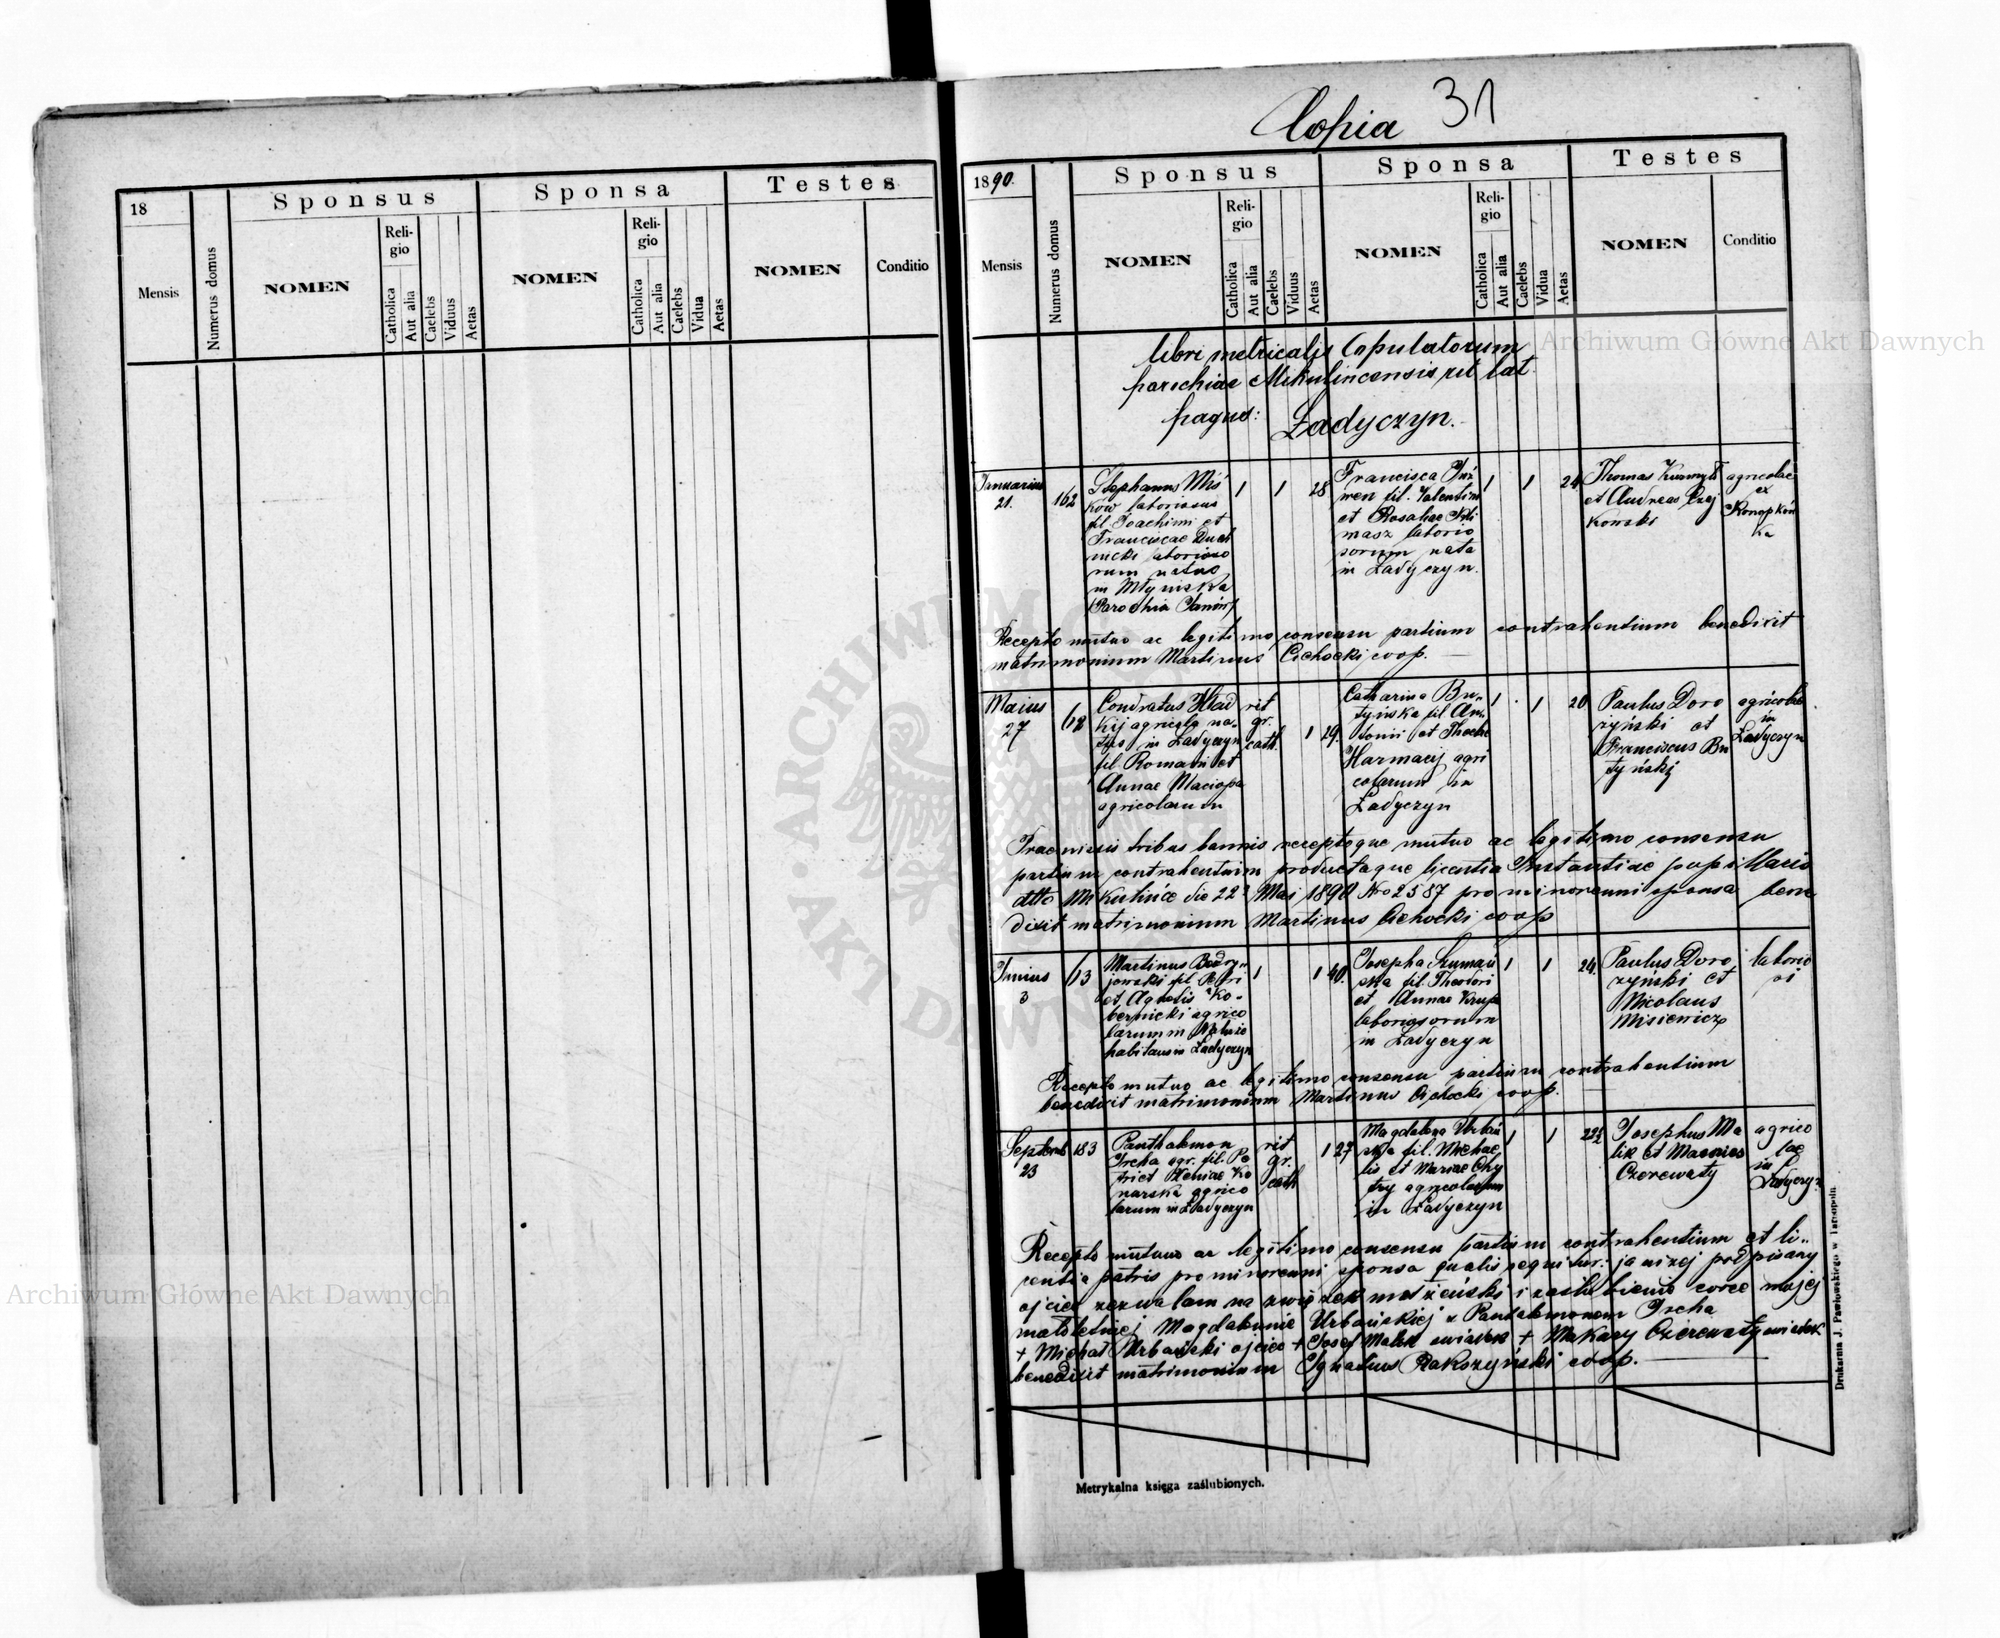 Copia 31
18
Mensis
Numerus domus
Sponsus
NOMEN
Religio
Catholica
Aut alia
Caelebs
Viduus
Aetas
Sponsa
NOMEN
Religio
Catholica
Aut alia
Caelebs
Vidua
Aetas
Testes
NOMEN
Conditio
1890.
Mensis
Numerus domus
Sponsus
NOMEN
Religio
Catholica
Aut alia
Caelebs
Viduus
Aetas
Sponsa
NOMEN
Religio
Catholica
Aut alia
Caelebs
Vidua
Aetas
Testes
NOMEN
Conditio
libri metricalis Copulatorum
parochiae Mikulincensis rit. lat.
pagus: Ładyczyn.
Januarius
21.
162
Stephanus Miś
ków laboriosus
fil. Joachimi et
Franciscae Duch
nicki laborioso
rum natus
in Młyniska
(Parochia Janów)
1
1
28
Francisca
fil. Valentini
et Rosaliae Kli
masz laborio
sorum nata
in Ładyczyn.
1
1
24
Thomas
et Andreas
kowski
agricolae
ex
Konopków
ka
Recepto mutuo ac legitimo consensu partium contrahentium benedixit
matrimonium Martinus Cichocki coop.
Maius
27
62
Condratus Hlad
kij agricola na-
tus in Ładyczyn
fil. Romani et
Annae Maciopa
agricolarum
rit
gr.
cath.
1
29.
Catharina Bu-
tyńska fil. An-
tonii et Theclae
Harmacij agri
colarum in
Ładyczyn
1
1
20
Paulus Doro
zyński et
Franciscus Bu
tyński
agricolae
in
Ładyczyn
Praemissis tribus bannis receptoque mutuo ac legitimo consensu
partium contrahentium productaque licentia Instantiae pupillaris
ddto Mikulińce die 22 Mai 1890 No 2587 pro minorenni sponsa bene
dixit matrimonium Martinus Cichocki coop
Junius
3
63
Martinus Bodry-
jowski fil. Petri
et Agnetis Ko-
bernicki agrico
larum in
habitans in Ładyczyn
1
1
40.
Josepha Szumań
ska fil. Theodori
et Annae Krupa
laboriosorum
in Ładyczyn
1
1
24.
Paulus Doro
zyński et
Nicolaus
Misiewicz
laborio
si
Recepto mutuo ac legitimo consensu partium contrahentium
benedixit matrimonium Martinus Cichocki coop.
Septemb
23
183
Panthalemon
Ircha agr. fil. Pe
tri et Xeniae Ko
narska agrico
larum in Ładyczyn
rit
gr.
cath
1
27
Magdalena Urbań
ska fil. Michae
lis et Mariae Chy
try agricolarum
in Ładyczyn
1
1
Josephus Ma
lik et Macarius
Czerewaty
agrico
lae
in
Ładyczyn
Recepto mutuo ac legitimo consensu partium contrahentium et li-
centia patris pro minorenni sponsa qualis sequitur: ja niżej podpisany
ojciec zezwalam na związek małżeński i zaślubienie córce mojej
małoletniej Magdalenie Urbańskiej z Pantalemonem Ircha
+ Michał Urbański ojciec + Josef Malik świadek + Makary Czerewaty świadek
benedixit matrimonium Ignatius Rakszyński coop.
Metrykalna księga zaślubionych.
Drukarnia J. Pawłowskiego w Tarnopolu
Archiwum Główne Akt Dawnych
Archiwum Główne Akt Dawnych
ARCHIWUM GŁÓWNE AKT DAWNYCH